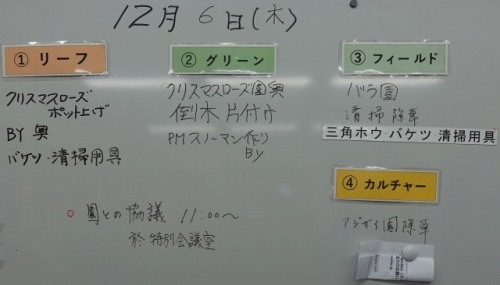 12月 6日(木)
① リーフ
クリスマスローズ
ポット上げ
BY 奥
バケツ・清掃用具
② グリーン
クリスマスローズ園奥
倒木片付け
PMスノーマン作り
BY
③ フィールド
バラ園
清掃除草
三角ホウ バケツ 清掃用具
④ カルチャー
アジサイ園除草
○ 園との協議 11:00～
於 特別会議室